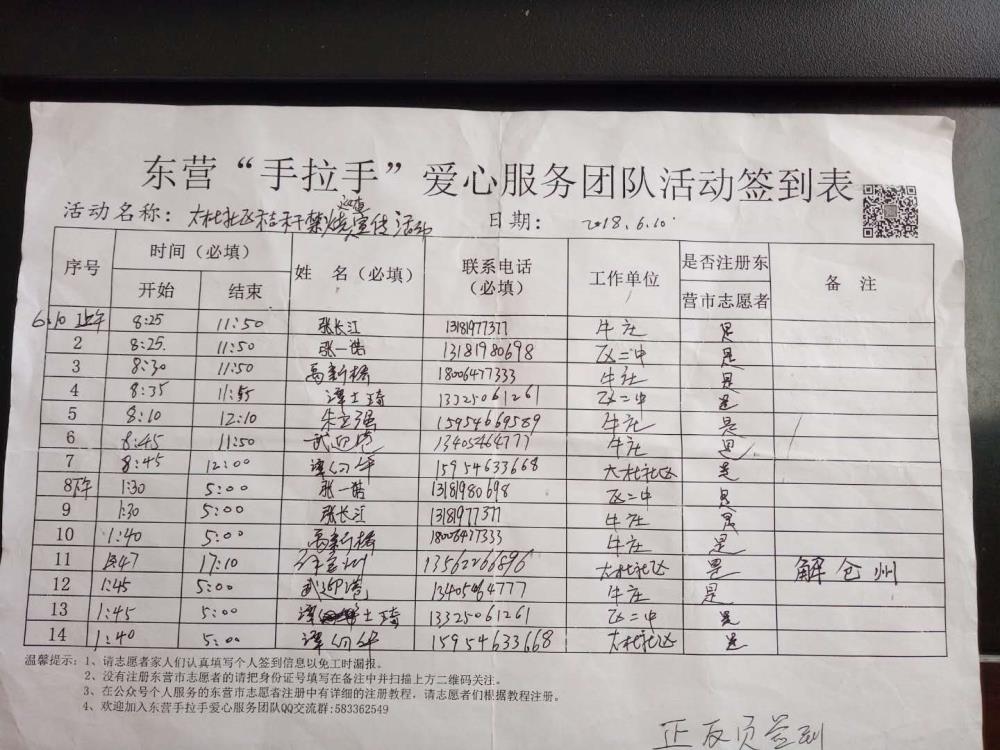 东营“手拉手”爱心服务团队活动签到表
活动名称：大杜社区秸秆禁烧宣传活动 日期：2018.6.10
序号 时间（必填） 姓 名（必填） 联系电话（必填） 工作单位 是否注册东营市志愿者 备 注
开始 结束
6.10 上午 8:25 11:50 张长江 13181977377 牛庄 是
2 8:25 11:50 张一皓 13181980698 区二中 是
3 8:30 11:50 高新桥 18006477333 牛庄 是
4 8:35 11:55 谭士琦 13325061261 区二中 是
5 8:10 12:10 朱立强 15954669589 牛庄 是
6 8:45 11:50 武迎 13405464777 牛庄 是
7 8:45 12:00 谭 15954633668 大杜社区 是
8 下午 1:30 5:00 张一皓 13181980698 区二中 是
9 1:30 5:00 张长江 13181977377 牛庄 是
10 1:40 5:00 高新桥 18006477333 牛庄 是
11 13:47 17:10 13562266896 大杜社区 是 解仓州
12 1:45 5:00 武迎 13405464777 牛庄 是
13 1:45 5:00 谭士琦 13325061261 区二中 是
14 1:40 5:00 谭 15954633668 大杜社区 是
温馨提示：1、请志愿者家人们认真填写个人签到信息以免工时漏报。
2、没有注册东营市志愿者的请把身份证号填写在备注中并扫描上方二维码关注。
3、在公众号个人服务的东营市志愿者注册中有详细的注册教程，请志愿者们根据教程注册。
4、欢迎加入东营手拉手爱心服务团队QQ交流群:583362549
正反页签到